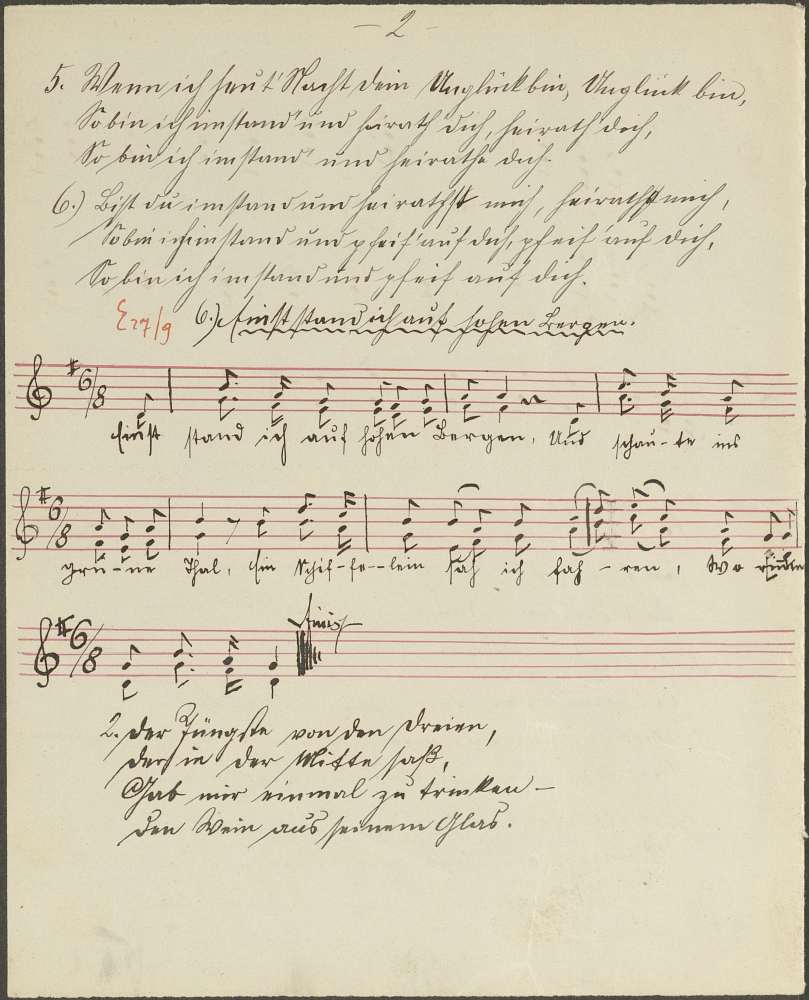 – 2 –
5. Wenn ich heut' Nacht dein Unglück bin, Unglück bin,
So bin ich imstand' und heirath' dich, heirath' dich,
So bin ich imstand' und heirathe dich.
6.) Bist du imstand und heirathst mich, heirathst mich,
So bin ich imstand und pfeif' auf dich, pfeif' auf dich,
So bin ich imstand und pfeif auf dich.
E 27/9 6.) Einst stand ich auf hohen Bergen.
6/8
Einst stand ich auf hohen Bergen, Und schau-te ins
6/8
grü--ne Thal, Ein Schif-fe--lein sah ich fah-ren, Wo
6/8
Finis
2. Der Jüngste von den Dreien,
der in der Mitte saß,
Gab mir einmal zu trinken –
Den Wein aus seinem Glas.